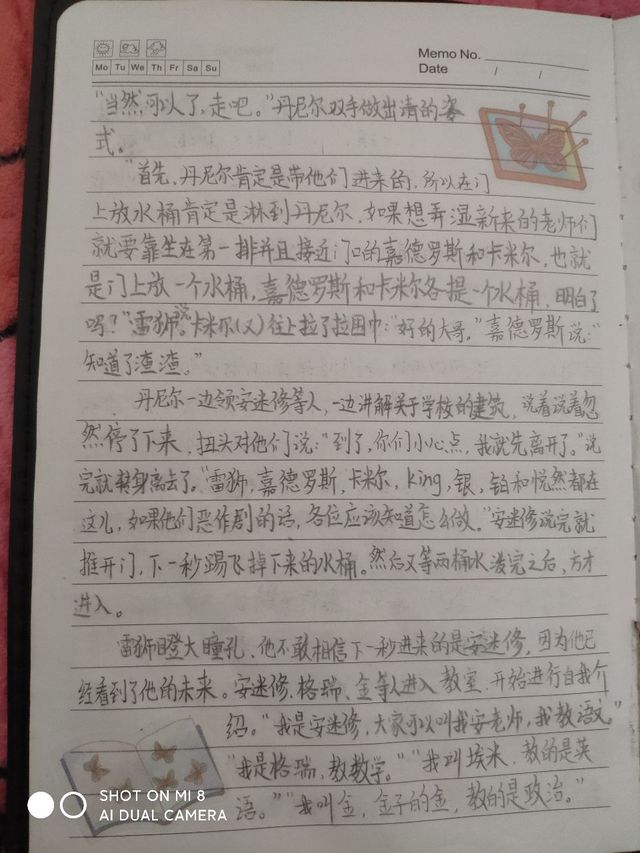 Mo Tu We Th Fr Sa Su
Memo No.
Date / /
"当然可以了，走吧。"丹尼尔双手做出请的姿
式。
"首先，丹尼尔肯定是带他们进来的，所以在门
上放水桶肯定是淋到丹尼尔，如果想弄湿新来的老师们
就要靠坐在第一排并且接近门口的嘉德罗斯和卡米尔，也就
是门上放一个水桶，嘉德罗斯和卡米尔各提一个水桶，明白了
吗？"雷狮说。卡米尔(又)往上拉了拉围巾："好的大哥。"嘉德罗斯说："
知道了渣渣。"
丹尼尔一边领安迷修等人，一边讲解关于学校的建筑，说着说着忽
然停了下来，扭头对他们说："到了，你们小心点，我就先离开了。"说
完就转身离去了。"雷狮，嘉德罗斯，卡米尔，king，银，铂和悦然都在
这儿，如果他们恶作剧的话，各位应该知道怎么做。"安迷修说完就
推开门，下一秒踢飞掉下来的水桶。然后又等两桶水泼完之后，方才
进入。
雷狮瞪大瞳孔，他不敢相信下一秒进来的是安迷修，因为他已
经看到了他的未来。安迷修，格瑞、金等人进入教室，开始进行自我介
绍。"我是安迷修，大家可以叫我安老师，我教语文。"
"我是格瑞，教数学。""我叫埃米，教的是英
语。""我叫金，金子的金，教的是政治。"
SHOT ON MI 8
AI DUAL CAMERA